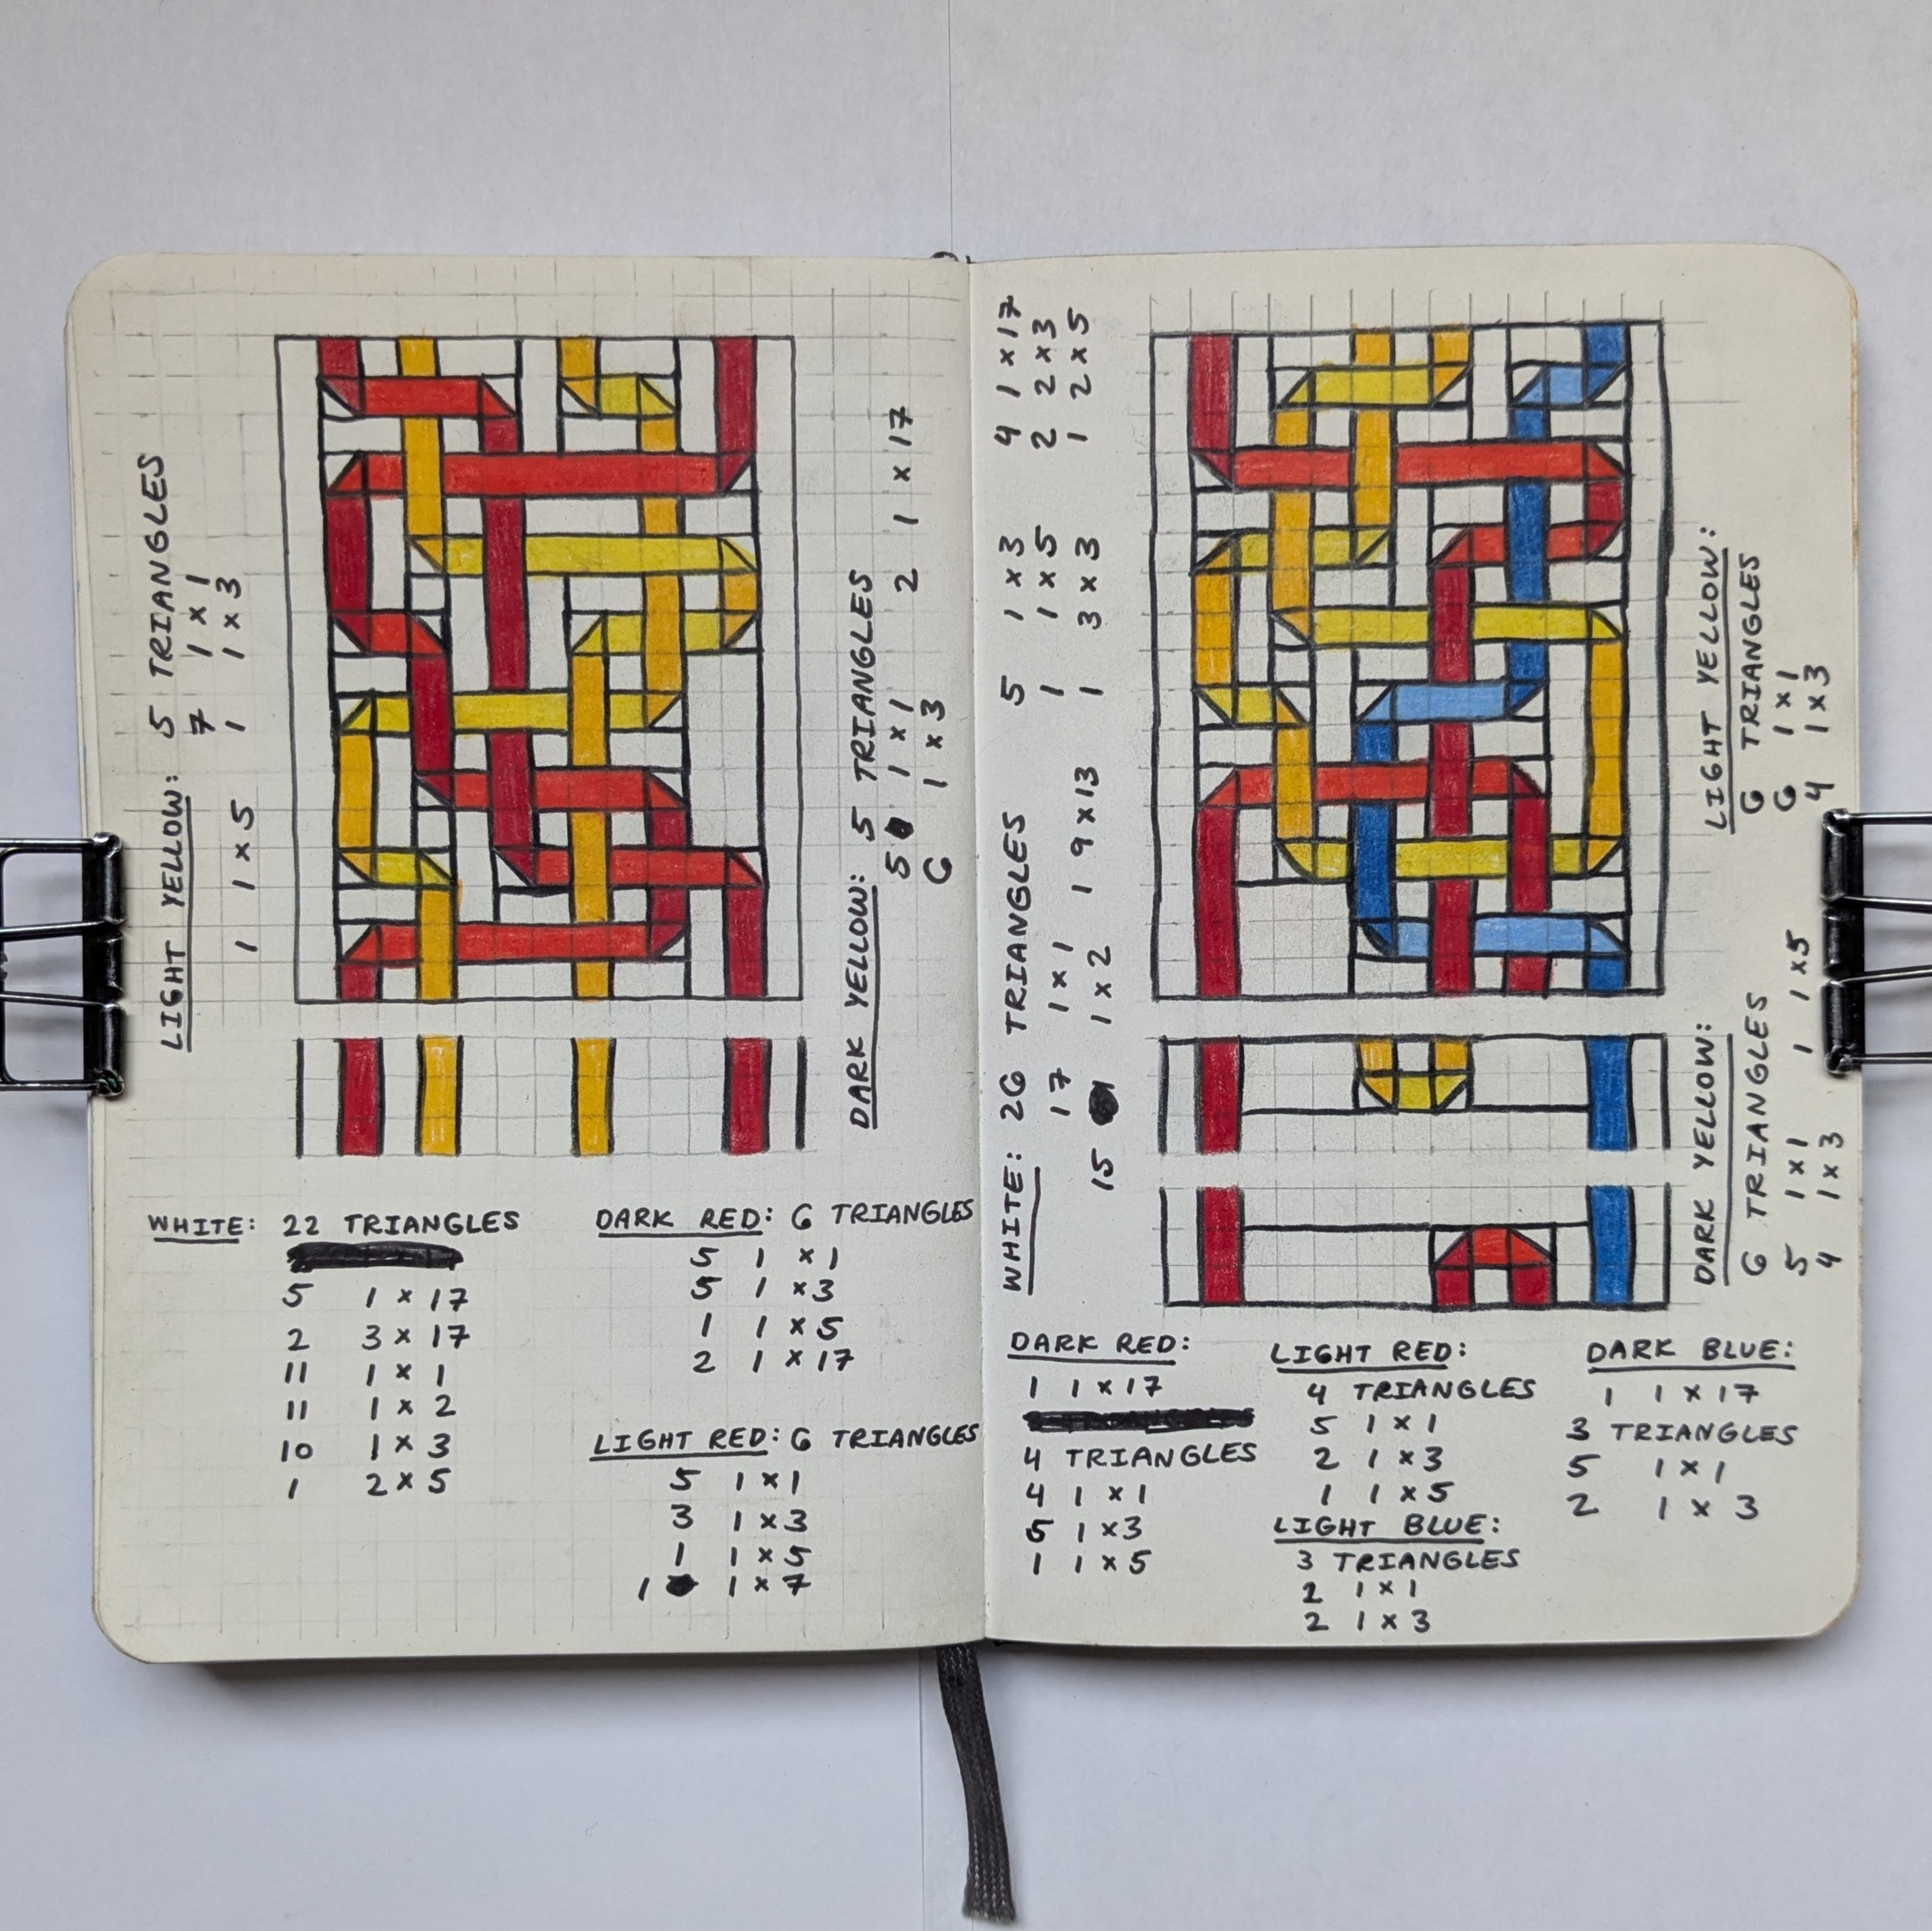 LIGHT YELLOW: 5 TRIANGLES
7 1 x 1
1 1 x 5 1 1 x 3
DARK YELLOW: 5 TRIANGLES
5 1 x 1 2 1 x 17
6 1 x 3
WHITE: 22 TRIANGLES
5 1 x 17
2 3 x 17
11 1 x 1
11 1 x 2
10 1 x 3
1 2 x 5
DARK RED: 6 TRIANGLES
5 1 x 1
5 1 x 3
1 1 x 5
2 1 x 17
LIGHT RED: 6 TRIANGLES
5 1 x 1
3 1 x 3
1 1 x 5
1 1 x 7
WHITE: 26 TRIANGLES 5 1 x 3 4 1 x 17
17 1 x 1 1 1 x 5 2 2 x 3
15 1 x 2 1 9 x 13 1 3 x 3 1 2 x 5
LIGHT YELLOW:
6 TRIANGLES
6 1 x 1
4 1 x 3
DARK YELLOW:
6 TRIANGLES
5 1 x 1 1 1 x 5
4 1 x 3
DARK RED:
1 1 x 17
4 TRIANGLES
4 1 x 1
5 1 x 3
1 1 x 5
LIGHT RED:
4 TRIANGLES
5 1 x 1
2 1 x 3
1 1 x 5
LIGHT BLUE:
3 TRIANGLES
2 1 x 1
2 1 x 3
DARK BLUE:
1 1 x 17
3 TRIANGLES
5 1 x 1
2 1 x 3